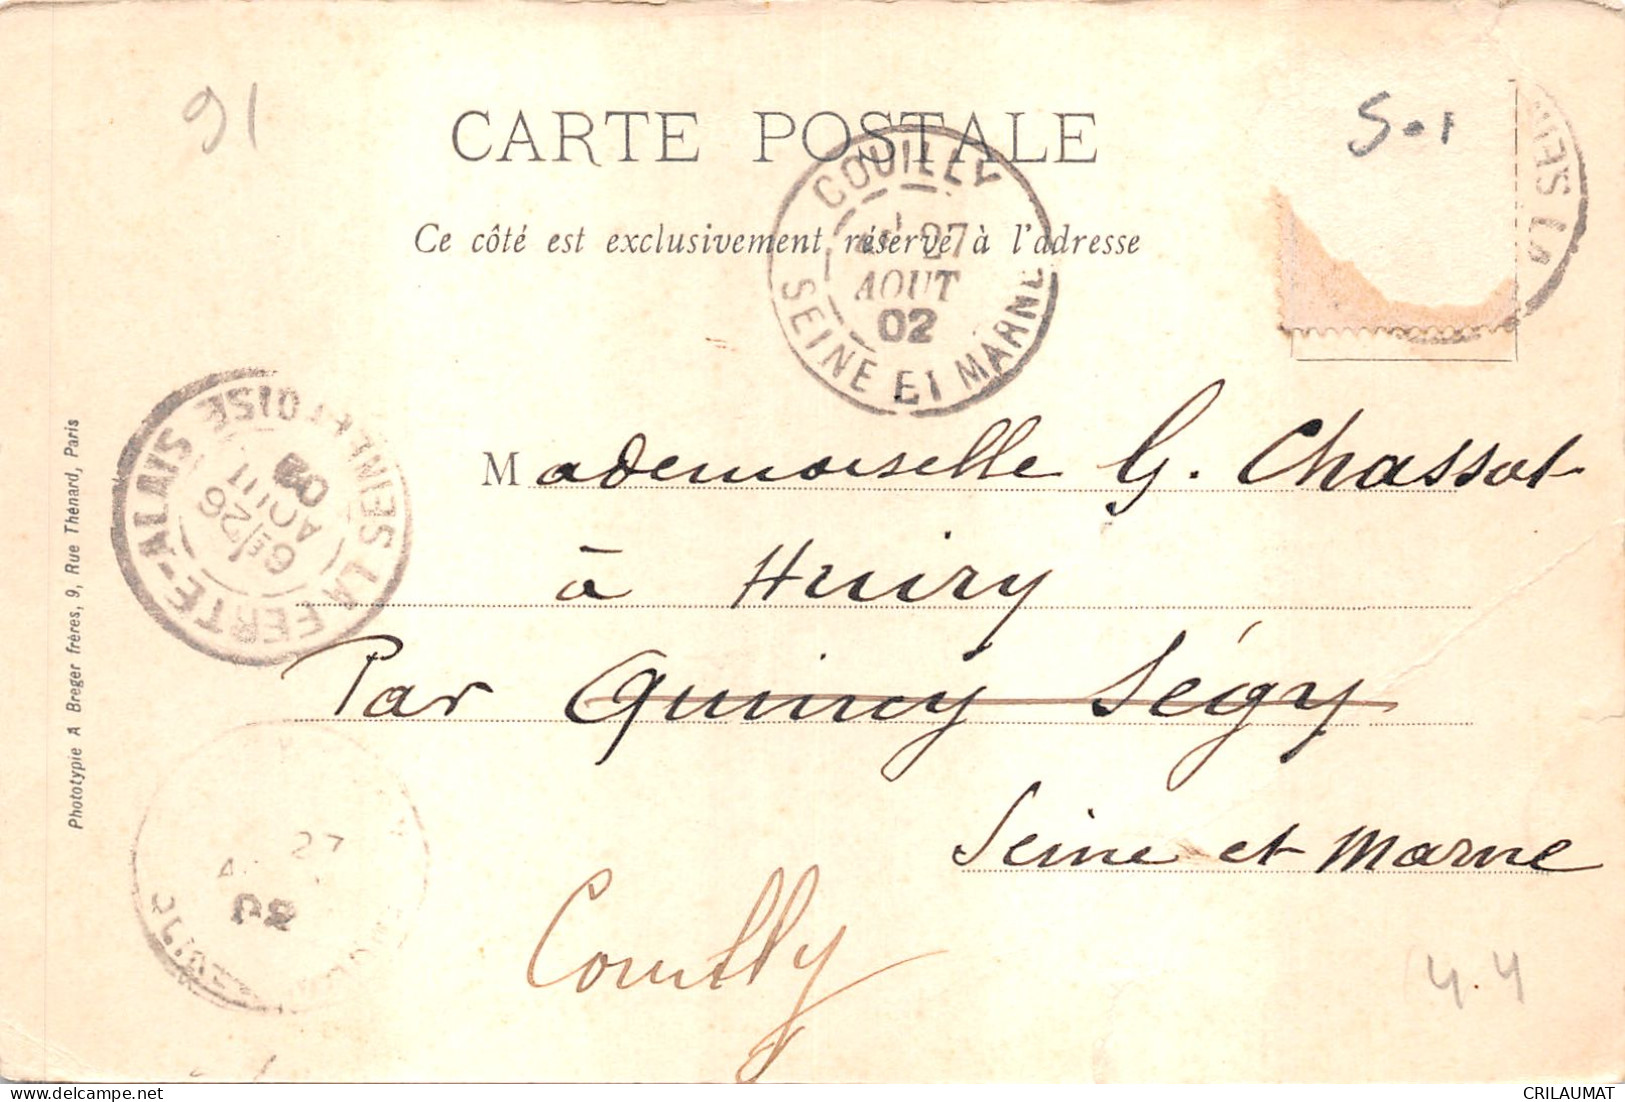 91
S-1
CARTE POSTALE
Ce côté est exclusivement réservé à l'adresse
COUILLY
27
AOUT
02
SEINE ET MARNE
LA FERTE-ALAIS
6E/26
AOUT
02
SEINE ET OISE
Mademoiselle G. Chassot
à Huiry
Par Quincy Ségy
Seine et Marne
Couilly
27
02
4.4
Phototypie A Breger frères, 9, Rue Thénard, Paris
CRILAUMAT